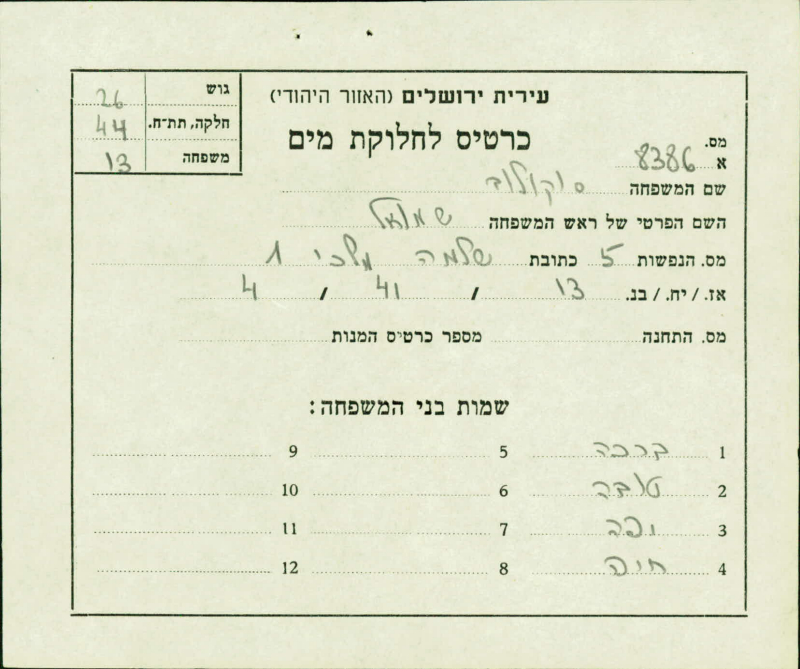 עירית ירושלים (האזור היהודי)
כרטיס לחלוקת מים
גוש 26
חלקה, תת־ח. 44
משפחה 13
מס.
א 8386
שם המשפחה סוקולוב
השם הפרטי של ראש המשפחה שמואל
מס. הנפשות 5 כתובת שלמה מלכי 1
אז. / יח. / בנ. 13 / 41 / 4
מס. התחנה מספר כרטיס המנות
שמות בני המשפחה:
1 ברכה 5 9
2 טובה 6 10
3 יפה 7 11
4 חיה 8 12